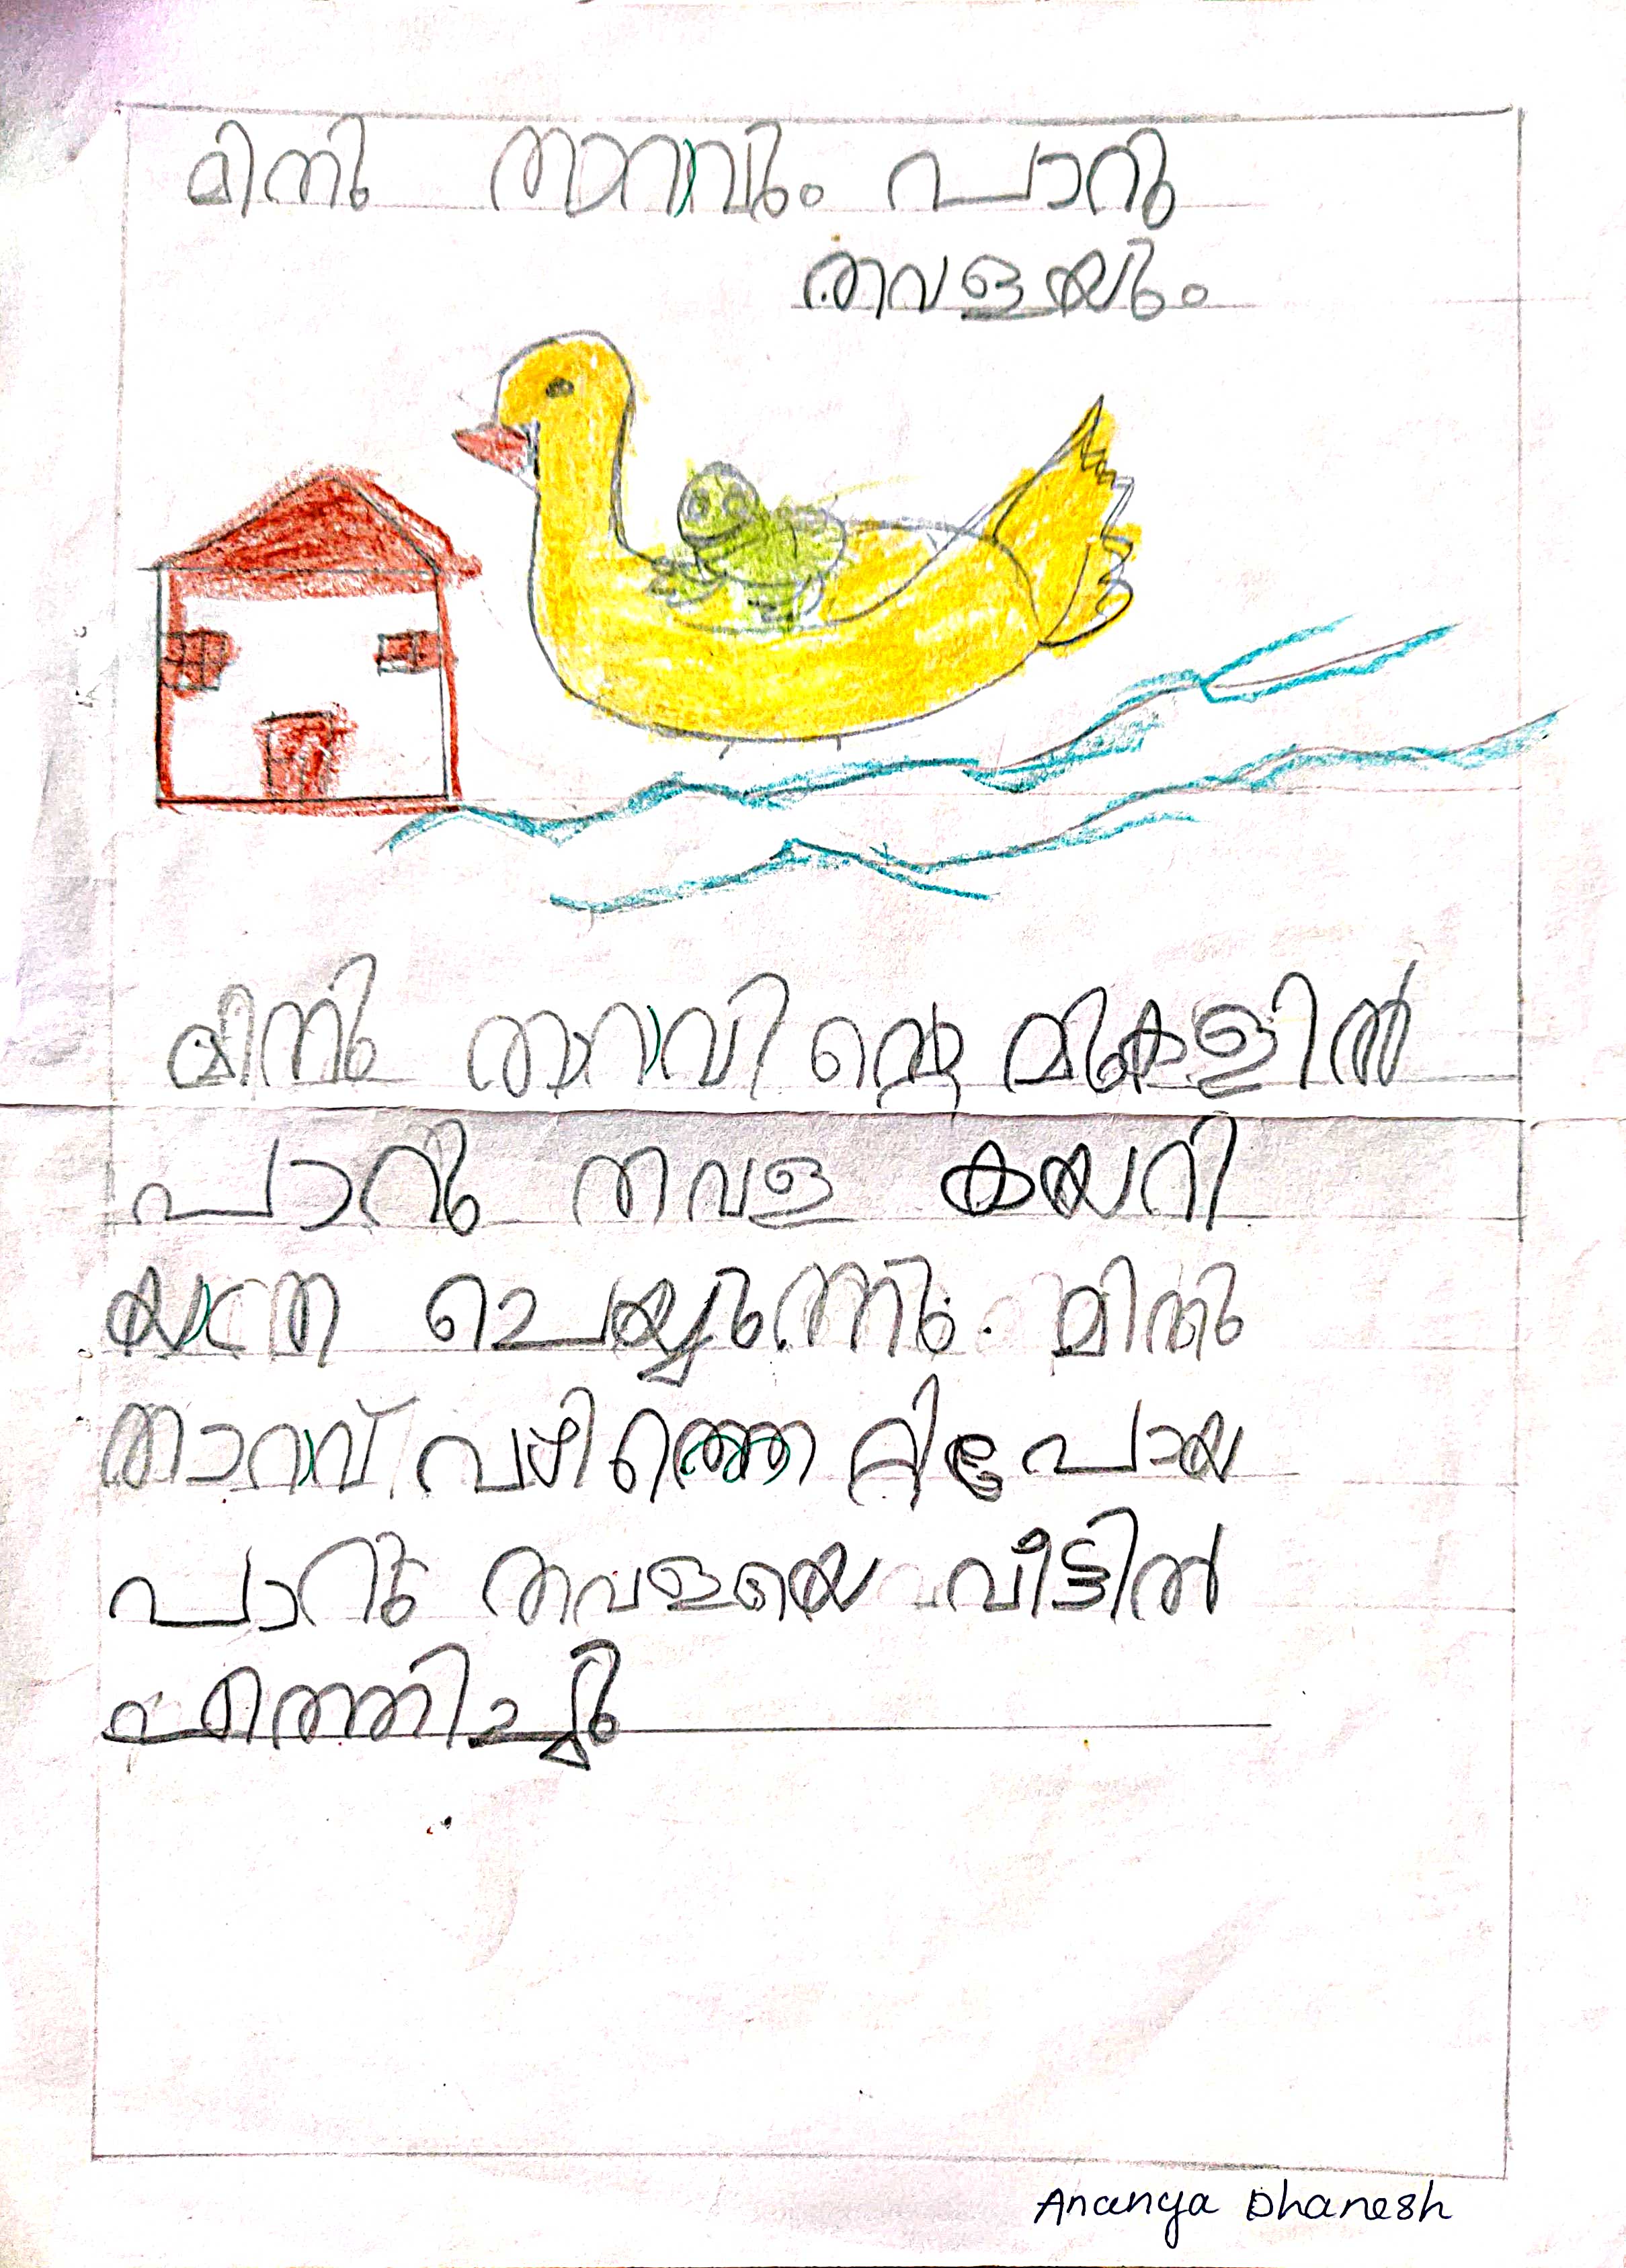 മിനു താറാവും പാറു
തവളയും
മിനു താറാവിന്റെ മുകളിൽ
പാറു തവള കയറി
യാത്ര ചെയ്യുന്നു. മിനു
താറാവ് വഴിതെറ്റിപോയ
പാറു തവളയെ വീട്ടിൽ
എത്തിച്ചു
Ananya Dhanesh